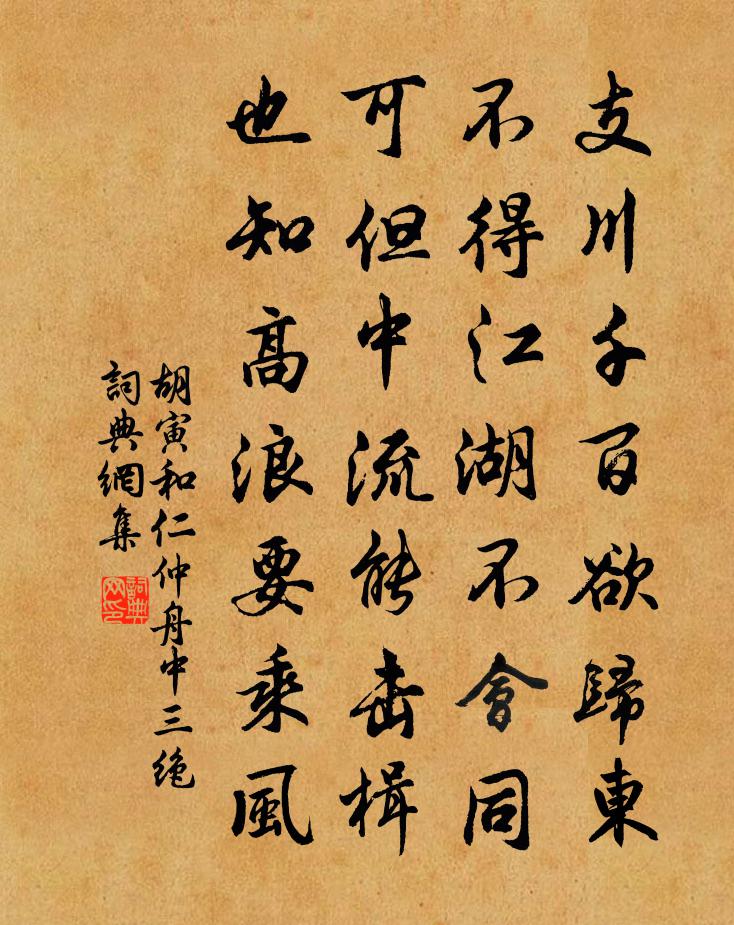 支川千百欲歸東
不得江湖不會同
可但中流能击楫
也知高浪要乘風
胡寅和仁仲舟中三绝
詞典網集
詞典网印